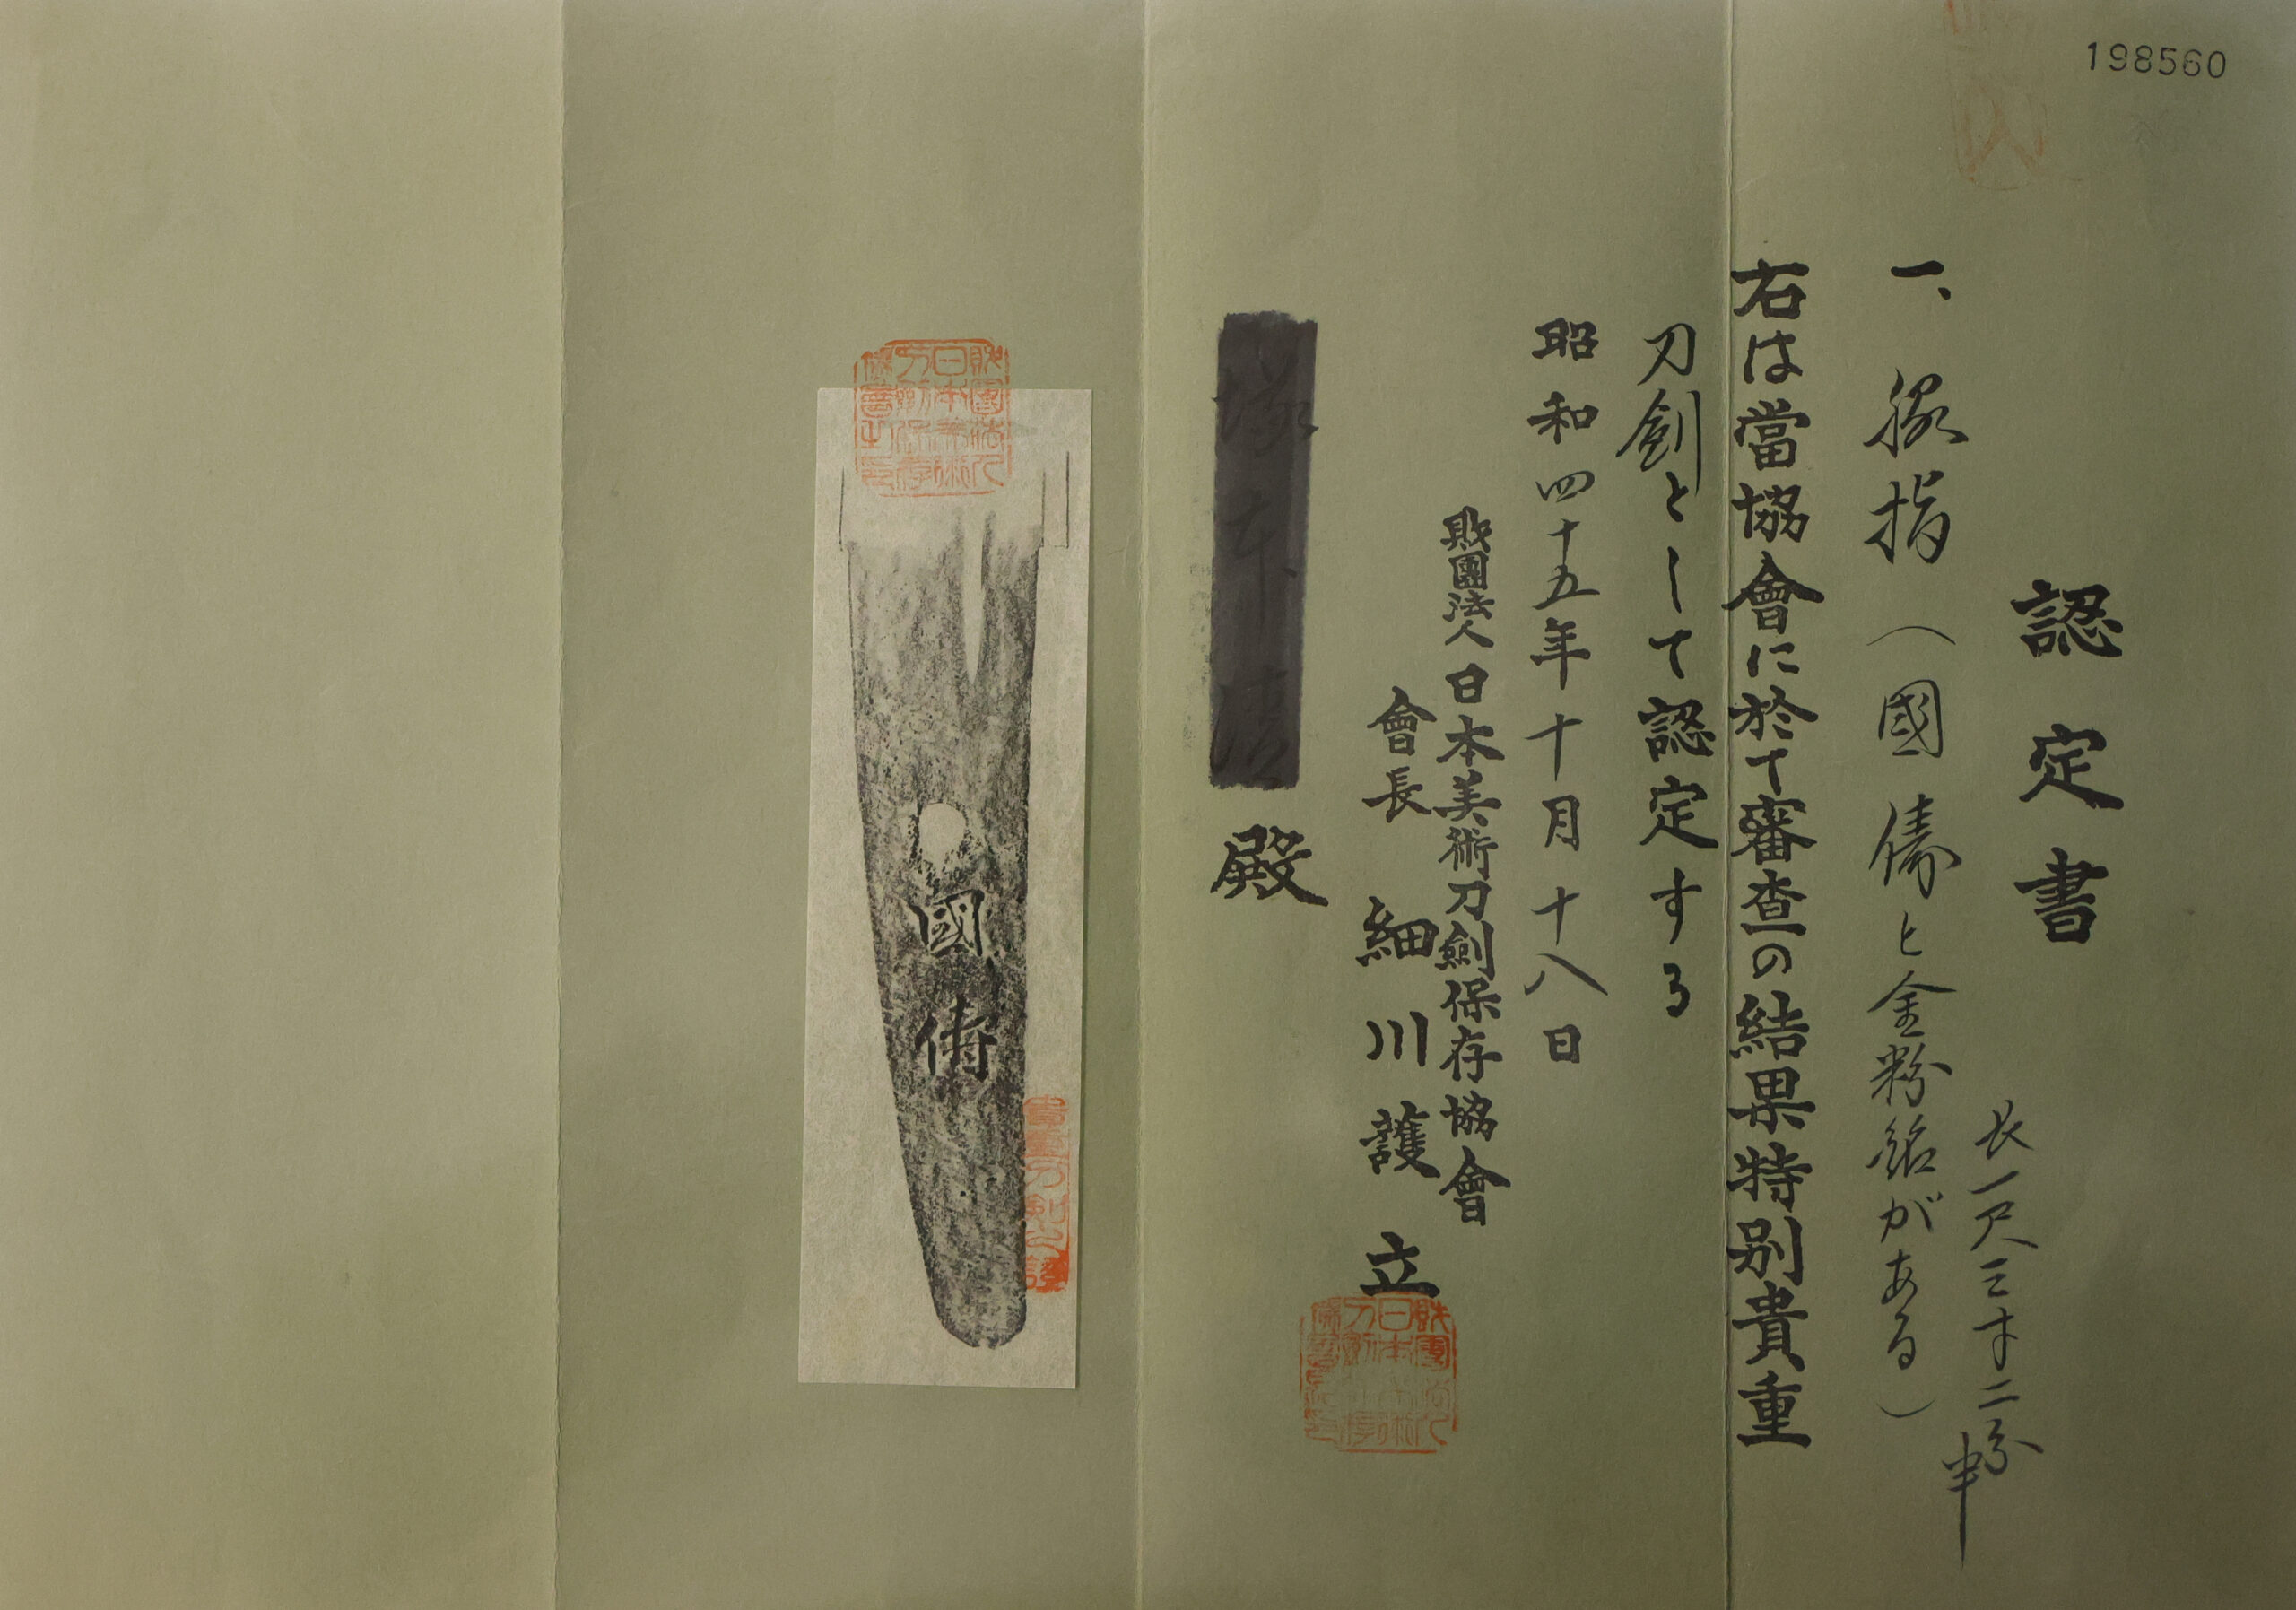 198560
認定書
一、脇指(國儔と金粉銘がある)
長一尺三寸二分半
右は當協會に於て審査の結果特別貴重
刀劍として認定する
昭和四十五年十月十八日
財團法人日本美術刀劍保存協會
會長 細川護立
殿
國儔